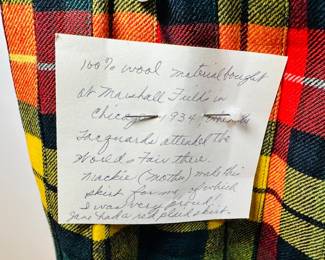 100% wool material bought
at Marshall Field's in
Chicago 1934
Jacquards attended the
World's Fair there.
Mackie (Mother) made this
skirt for me of which
I was very proud!
Jane had a red plaid skirt.